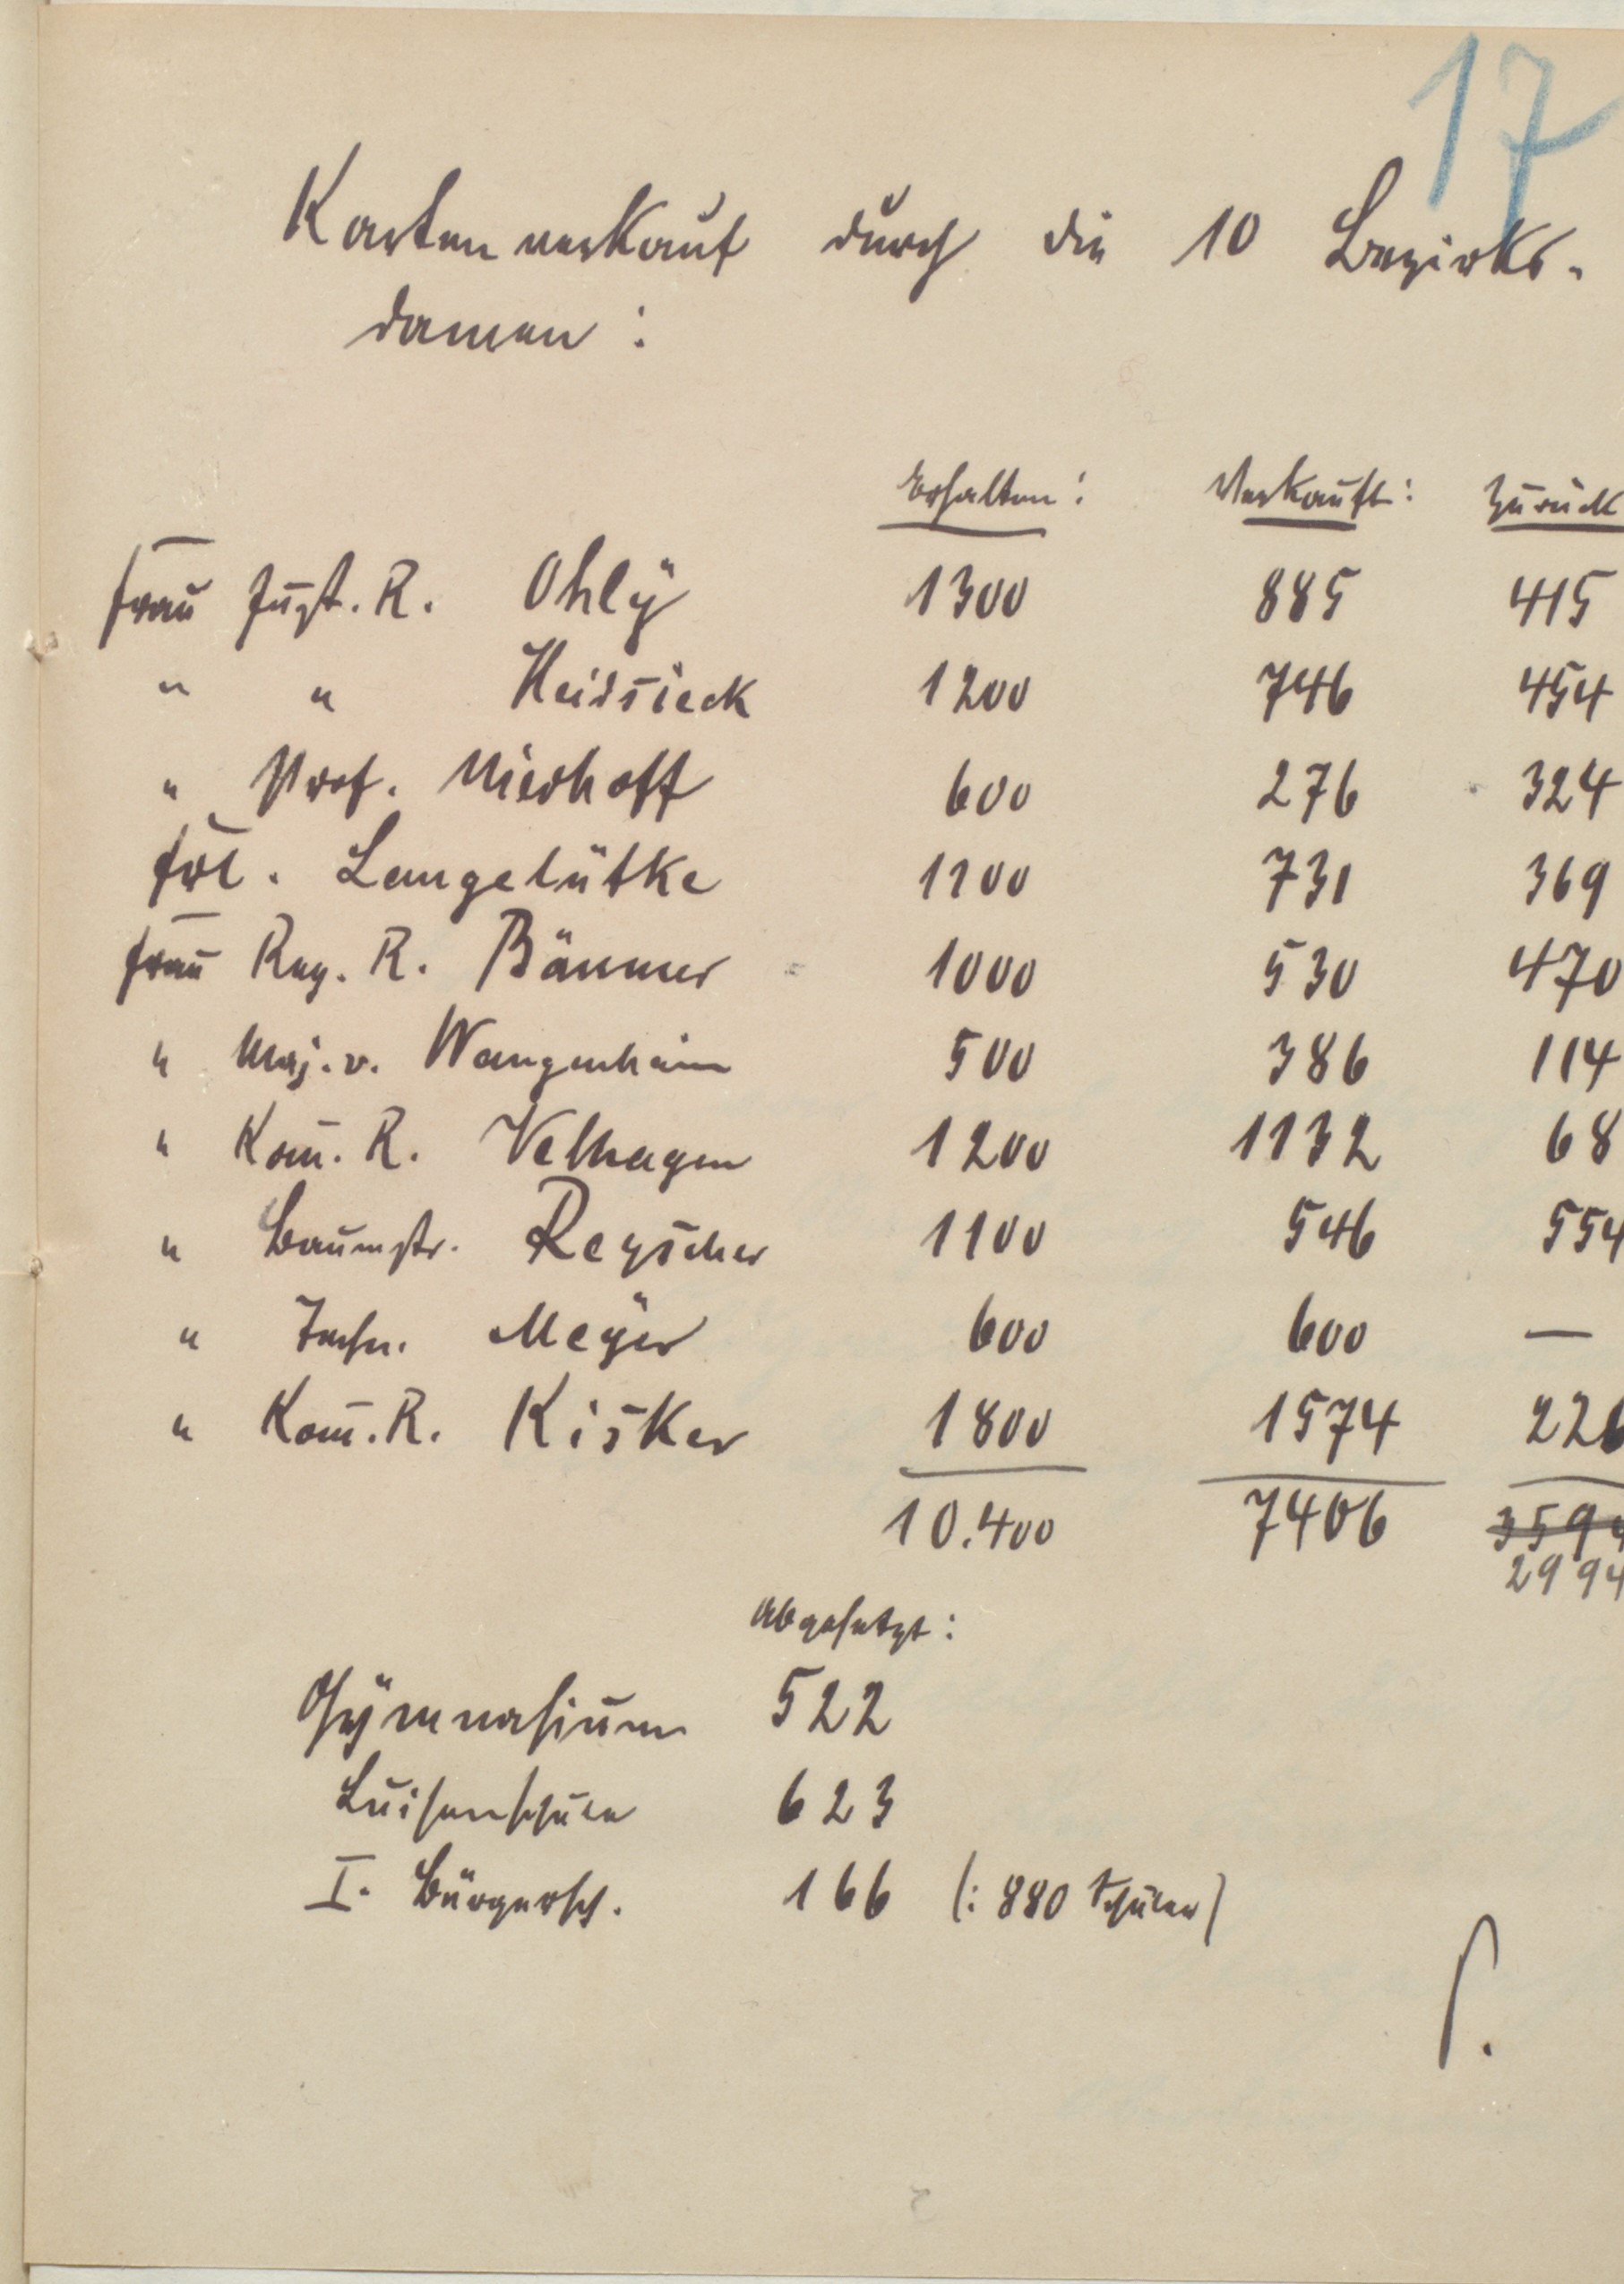 17
Kartenverkauf durch die 10 Bezirks-
damen:
Erhalten: Verkauft: Zurück
Frau Just. R. Ohlÿ 1300 885 415
" " Heidsieck 1200 746 454
" Prof. Nierhoff 600 276 324
Frl. Langelütke 1100 731 369
Frau Reg. R. Bäumer 1000 530 470
" Maj. v. Wangenheim 500 386 114
" Kom̅. R. Velhagen 1200 1132 68
" Baumstr. Reyscher 1100 546 554
" Meÿer 600 600 —
" Kom̅. R. Kisker 1800 1574 226
10.400 7406 3594
2994
Abgesetzt:
Gÿmnasium 522
Luisenschule 623
I. Bürgersch. 166 (: 880 Schüler)